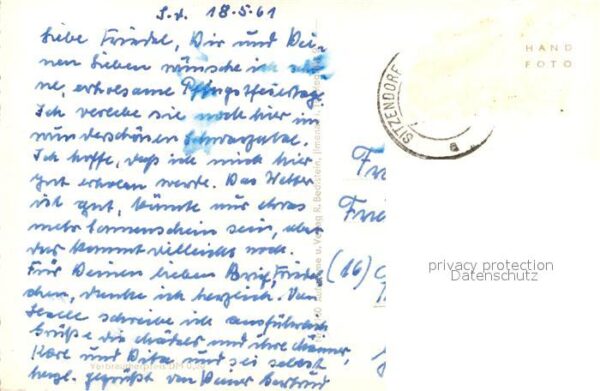 S.d. 18.5.61
Liebe Friedel, Dir und Dei-
nen Lieben wünsche ich schö-
ne, erholsame Pfingstfeiertage
Ich verlebe sie noch hier im
wunderschönen Schwarzatal.
Ich hoffe, daß ich mich hier
gut erholen werde. Das Wetter
ist gut, könnte nur etwas
mehr Sonnenschein sein, aber
der kommt vielleicht noch.
Für Deinen lieben Brief, Friedel-
chen, danke ich herzlich. Von
schreibe ich ausführlich
Grüße die Mädels und ihre Männer,
Käre und Rita und sei selbst
herzl. gegrüßt von Deiner Gertrud
HAND
FOTO
SITZENDORF
a
(16)
Aufnahme u. Verlag R. Bechstein, Ilmenau
Verbraucherpreis DM 0,20
privacy protection
Datenschutz